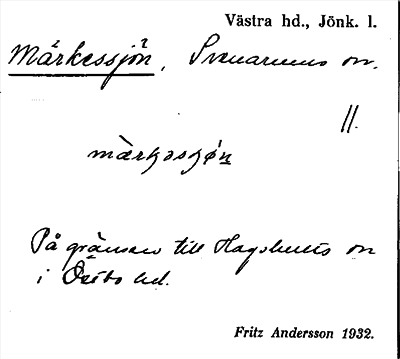 Västra hd., Jönk. l.
Märkessjön, Svenarums sn.
II.
mä̀rkəsʃø̀n
På gränsen till Hagshults sn
i Östbo hd.
Fritz Andersson 1932.